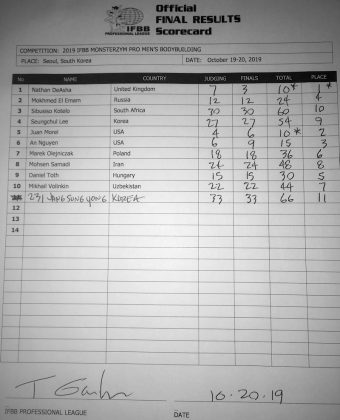 IFBB
PROFESSIONAL LEAGUE
Official
FINAL RESULTS
Scorecard
COMPETITION: 2019 IFBB MONSTERZYM PRO MEN'S BODYBUILDING
PLACE: Seoul, South Korea DATE: October 19-20, 2019
No NAME COUNTRY JUDGING FINALS TOTAL PLACE
1 Nathan DeAsha United Kingdom 7 3 10* 1*
2 Mokhmed El Emam Russia 12 12 24 4
3 Sibusiso Kotelo South Africa 30 30 60 10
4 Seungchul Lee Korea 27 27 54 9
5 Juan Morel USA 4 6 10* 2
6 An Nguyen USA 6 9 15 3
7 Marek Olejniczak Poland 18 18 36 6
8 Mohsen Samadi Iran 24 24 48 8
9 Daniel Toth Hungary 15 15 30 5
10 Mikhail Volinkin Uzbekistan 22 22 44 7
231 YANG SUNG YONG KOREA 33 33 66 11
12
13
14
10.20.19
IFBB PROFESSIONAL LEAGUE DATE